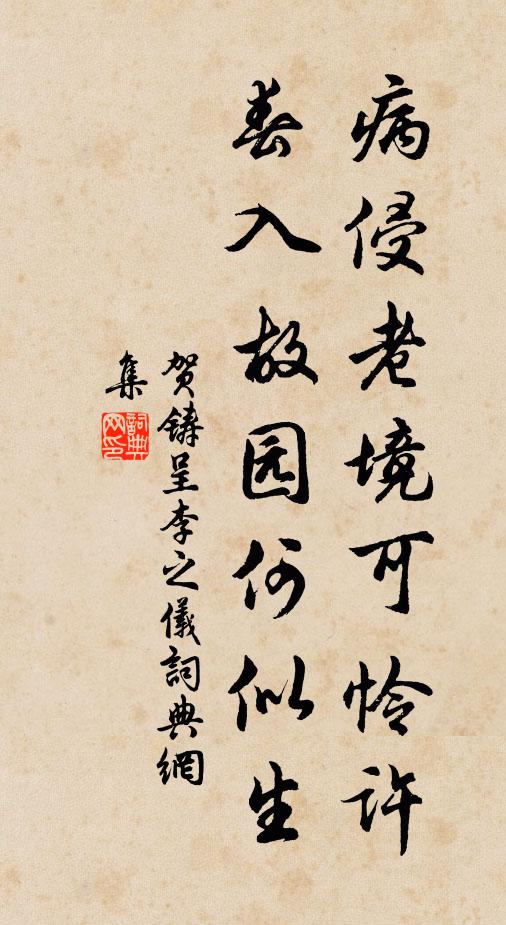 病侵老境可怜许
春入故园何似生
贺铸呈李之儀詞典網
集
詞典
网印